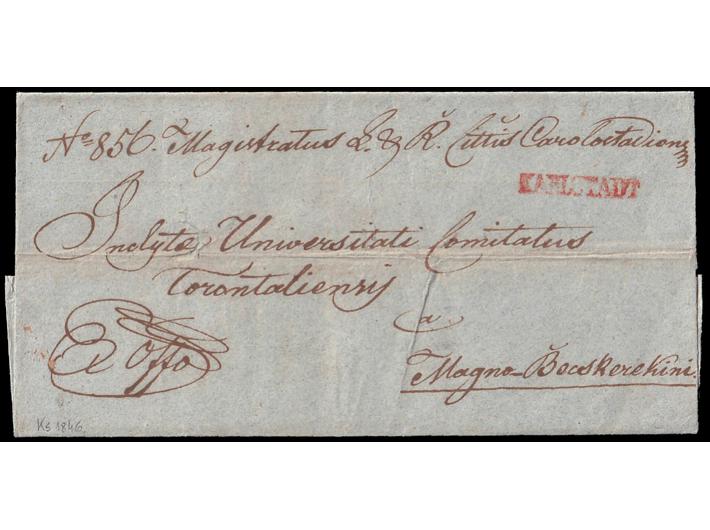 No 856. Magistratus L. & R. Cittis Carolostadiensis
KARLSTADT
Inclyte Universitati Comitatus
Torontaliensis
Ex Offo
a
Magno-Becskerekini.
Ks 1846